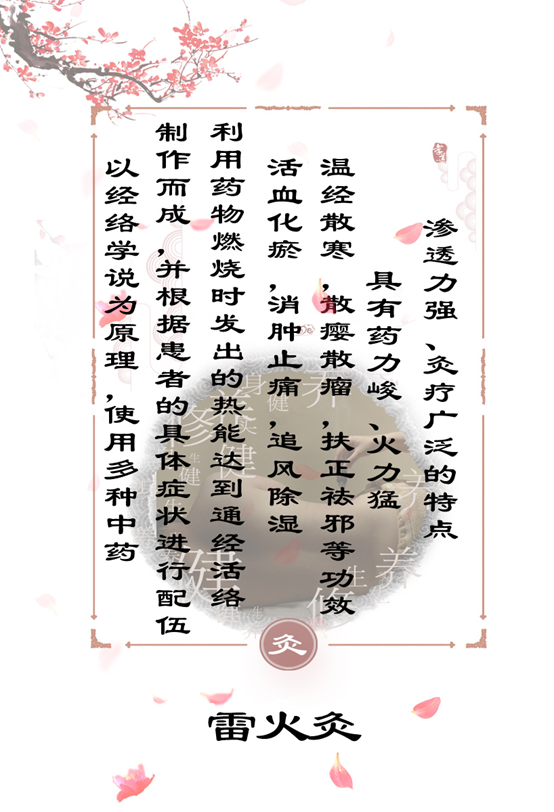 以经络学说为原理,使用多种中药
制作而成,并根据患者的具体症状进行配伍
利用药物燃烧时发出的热能达到通经活络
活血化瘀,消肿止痛,追风除湿
温经散寒,散瘿散瘤,扶正祛邪等功效
具有药力峻、火力猛
渗透力强、灸疗广泛的特点
灸
雷火灸